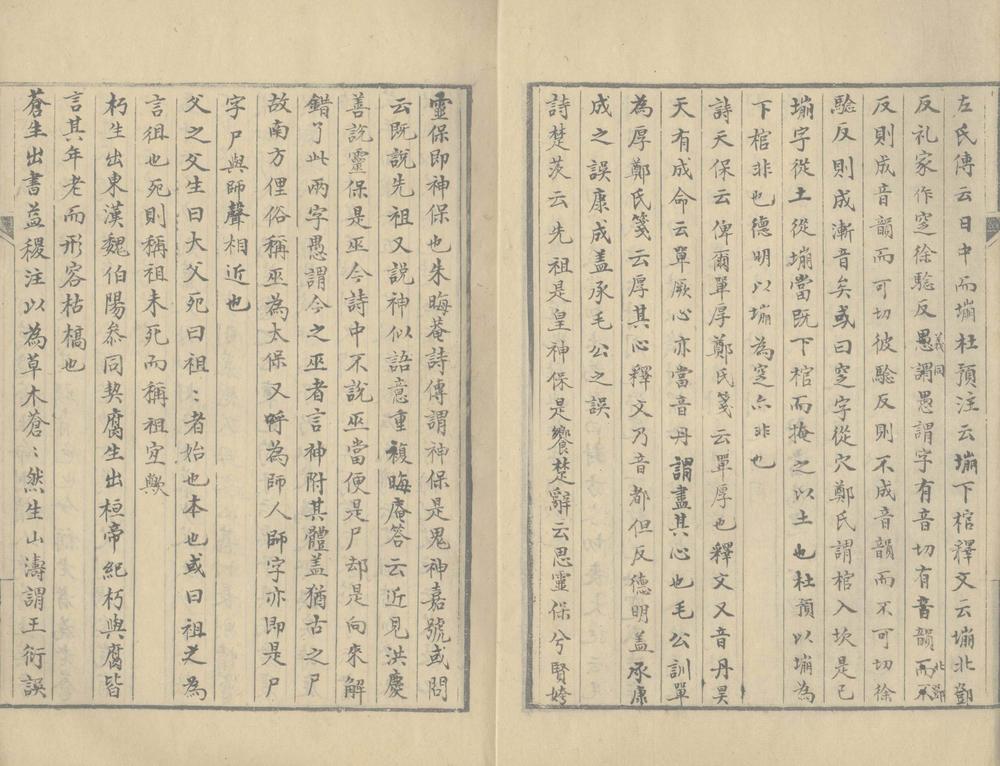 左氏傳云日中而塴杜預注云塴下棺釋文云塴北鄧
反礼家作窆徐駗反義同愚謂愚謂字有音切有音韻而不北鄧
反則成音韻而可切彼駗反則不成音韻而不可切徐
駗反則成漸音矣或曰窆字從穴鄭氏謂棺入坎是已
塴字從土從塴當既下棺而掩之以土也杜預以塴為
下棺非也德明以塴為窆亦非也
詩天保云俾爾單厚鄭氏箋云單厚也釋文又音丹昊
天有成命云單厥心亦當音丹謂盡其心也毛公訓單
為厚鄭氏箋云厚其心釋文乃音都但反德明盖承康
成之誤康成盖承毛公之誤
詩楚茨云先祖是皇神保是饗楚辭云思靈保兮賢姱
靈保即神保也朱晦菴詩傳謂神保是鬼神嘉號或問
云既說先祖又說神似語意重複晦庵答云近見洪慶
善說靈保是巫今詩中不說巫當便是尸却是向來解
錯了此兩字愚謂今之巫者言神附其體盖猶古之尸
故南方俚俗稱巫為太保又呼為師人師字亦即是尸
字尸與師聲相近也
父之父生曰大父死曰祖:者始也本也或曰祖老為
言徂也死則稱祖未死而稱祖宜歟
朽生出東漢魏伯陽叅同契腐生出桓帝紀朽與腐皆
言其年老而形容枯槁也
蒼生出書益稷注以為草木蒼:然生山濤謂王衍誤